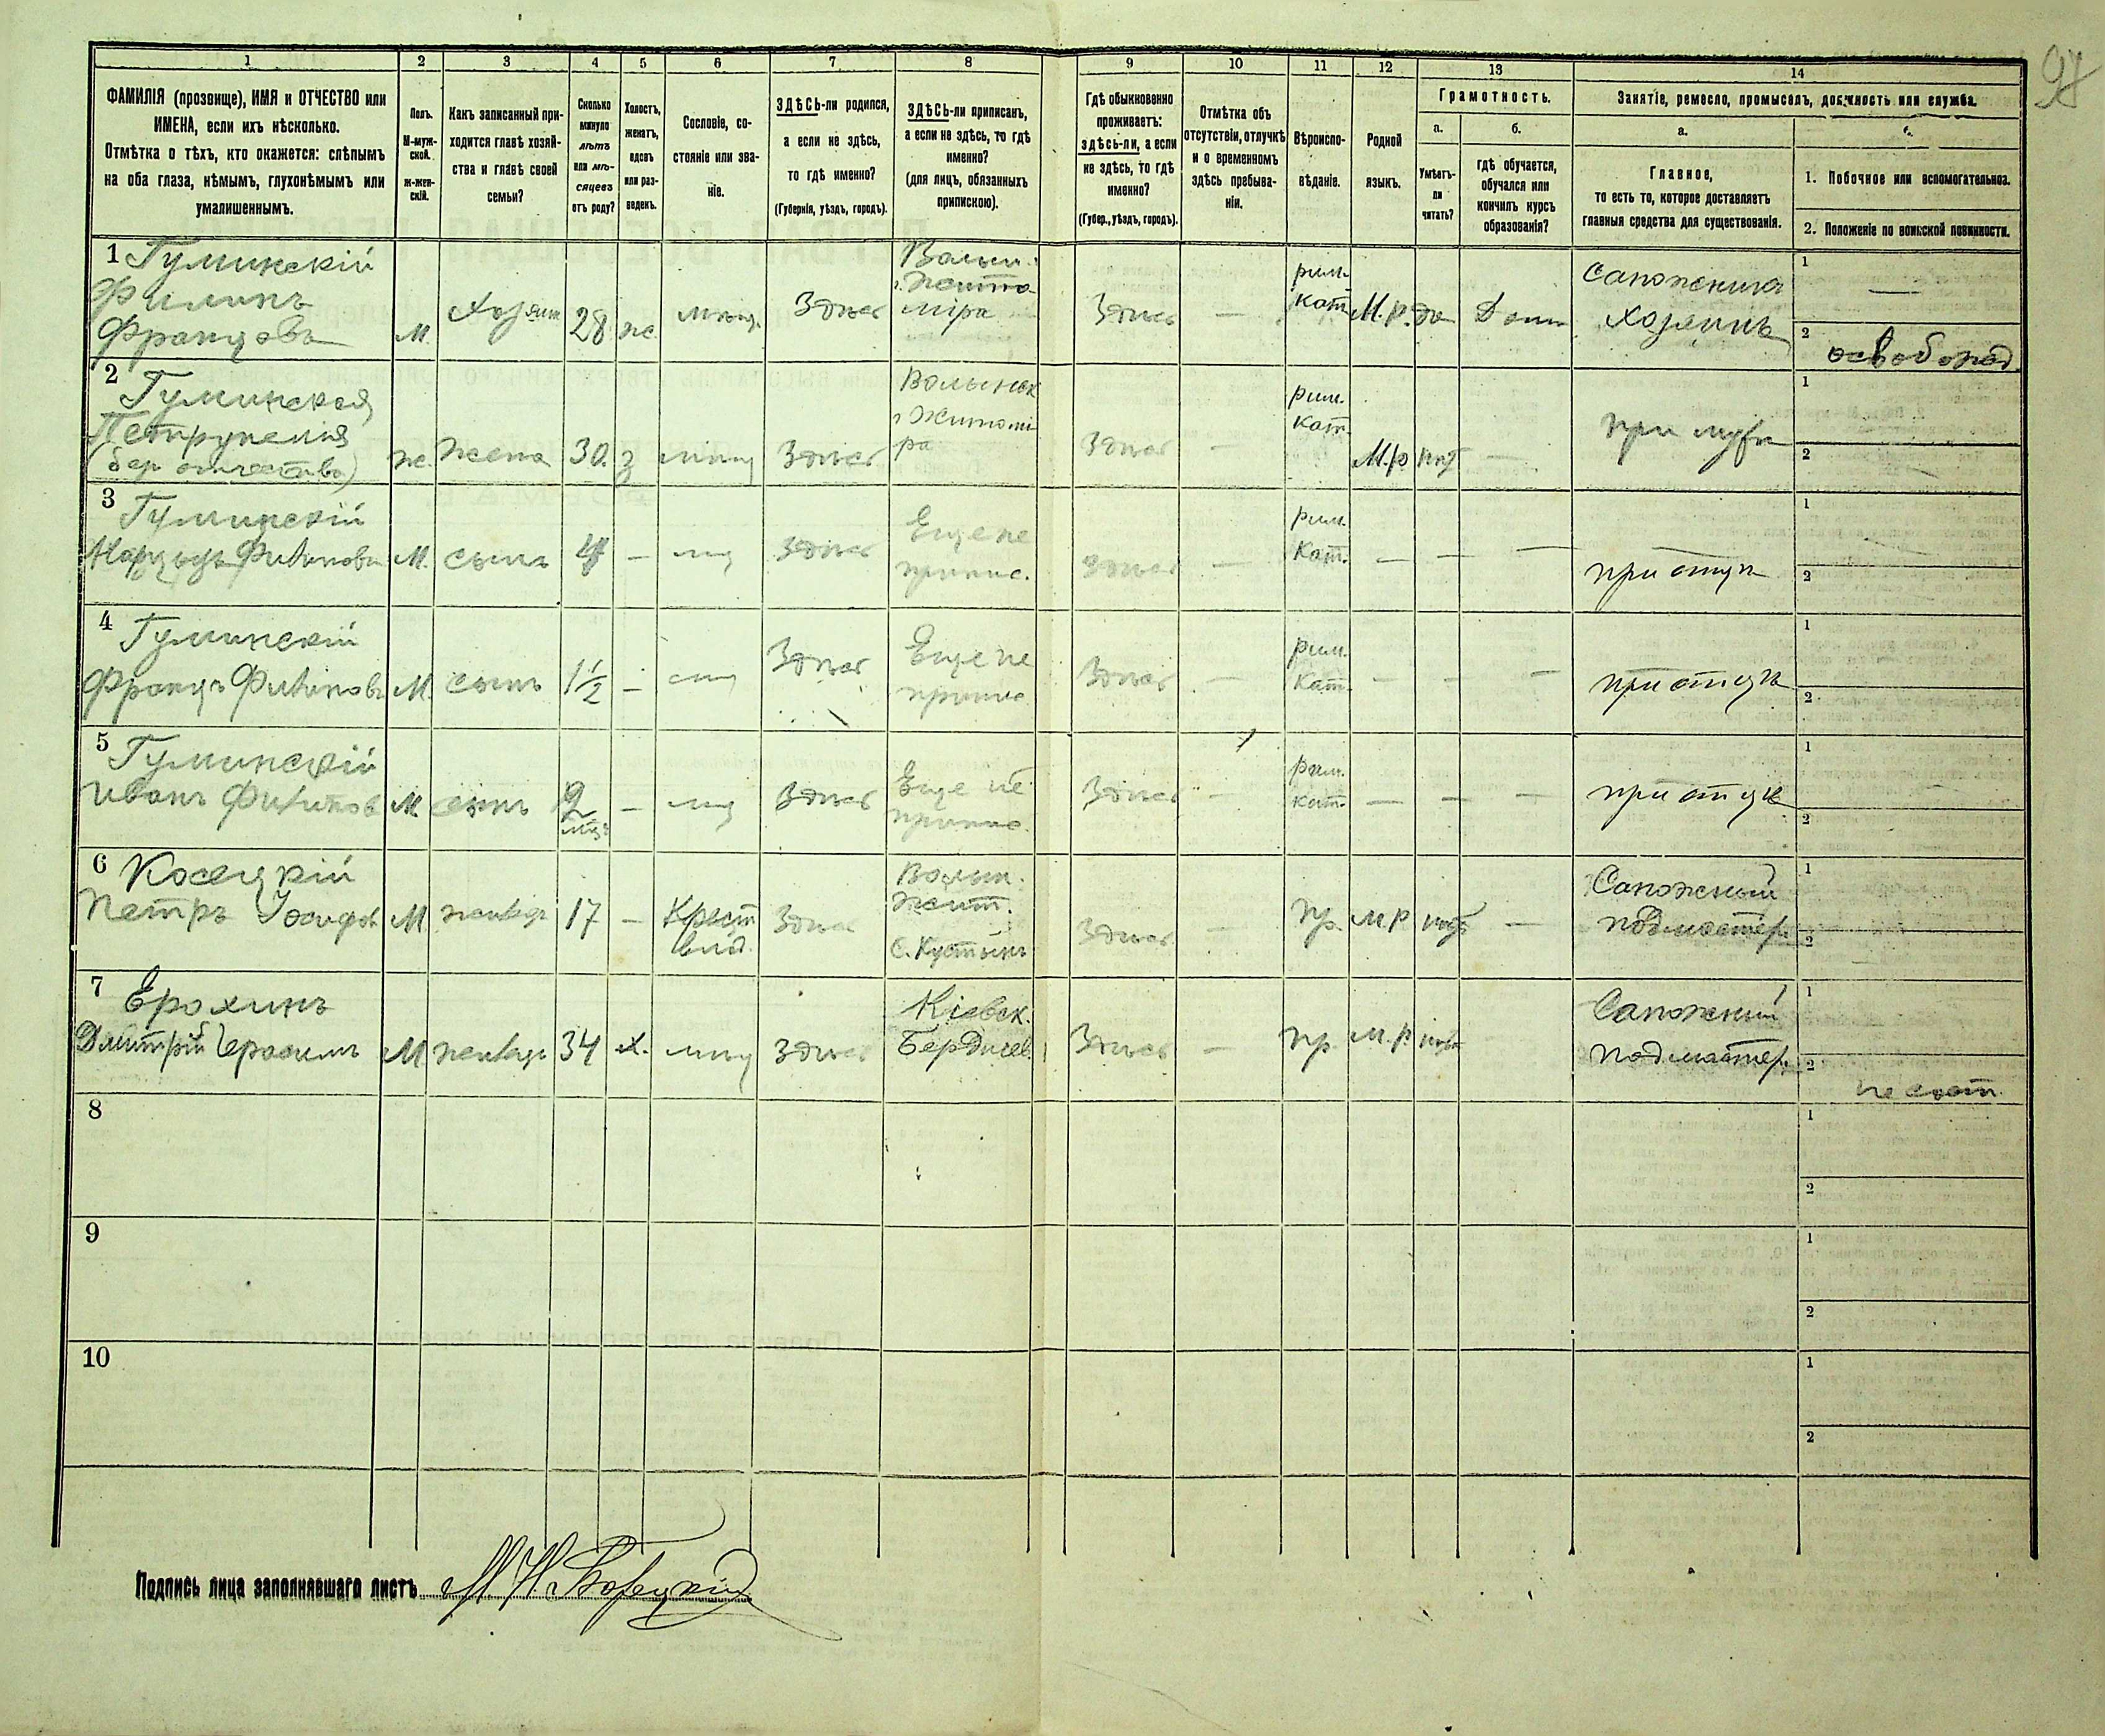 97
1 2 3 4 5 6 7 8 9 10 11 12 13 14
ФАМИЛІЯ (прозвище), ИМЯ и ОТЧЕСТВО или
ИМЕНА, если ихъ нѣсколько.
Отмѣтка о тѣхъ, кто окажется: слѣпымъ
на оба глаза, нѣмымъ, глухонѣмымъ или
умалишеннымъ.
Полъ.
М-муж-
ской.
ж-жен-
скій.
Какъ записанный при-
ходится главѣ хозяй-
ства и главѣ своей
семьи?
Сколько
минуло
лѣтъ
или мѣ-
сяцевъ
отъ роду?
Холостъ,
женатъ,
вдовъ
или раз-
веденъ.
Сословіе, со-
стояніе или зва-
ніе.
ЗДѢСЬ-ли родился,
а если не здѣсь,
то гдѣ именно?
(Губернія, уѣздъ, городъ).
ЗДѢСЬ-ли приписанъ,
а если не здѣсь, то гдѣ
именно?
(для лицъ, обязанныхъ
припискою).
Гдѣ обыкновенно
проживаетъ:
здѣсь-ли, а если
не здѣсь, то гдѣ
именно?
(Губер., уѣздъ, городъ).
Отмѣтка объ
отсутствіи, отлучкѣ
и о временномъ
здѣсь пребыва-
ніи.
Вѣроиспо-
вѣданіе.
Родной
языкъ.
Грамотность.
а.
Умѣетъ-
ли
читать?
б.
гдѣ обучается,
обучался или
кончилъ курсъ
образованія?
Занятіе, ремесло, промыселъ, должность или служба.
а.
Главное,
то есть то, которое доставляетъ
главныя средства для существованія.
1. Побочное или вспомогательное.
2. Положеніе по воинской повинности.
1 Гуминскій
Филипъ
Францовъ
М. Хозяин 28 ж. мѣщ. Здѣсь
Волын.
г. Жито
міра
Здѣсь —
рим.
кат. М.р. да Дома
Сапожника
Хозяинъ
1 —
2 освобожд
2 Гуминская
Петрунелия
(без отчества)
ж. жена 30. з мѣщ Здѣсь
Волынск
г Житомі
ра
Здѣсь —
рим.
кат.
М.р нѣт —
при мужѣ
1
2
3 Гуминскій
Филипов М. сынъ 4 — мщ Здѣсь
Еще не
припис.
Здѣсь —
рим.
кат. — — —
при отцѣ
1
2
4 Гуминскій
Францъ Филиповъ М. сынъ 1½ — мщ Здѣсь
Еще не
припис
Здѣсь —
рим.
кат. — — —
при отцѣ
1
2
5 Гуминскій
Иванъ Филипов М. сынъ 2 мц — мщ Здѣсь
Еще не
припис.
Здѣсь —
рим.
кат. — — —
при отцѣ
1
2
6 Косецкій
Петръ Іосифов М. 17 —
Крест
влад.
Здѣсь
Волын.
Жит.
с. Кустынъ
Здѣсь — пр. м.р нѣт —
Сапожный
подмастер.
1
2
7 Ерохинъ
Дмитрій М. 34 х. мѣщ Здѣсь
Кіевск.
Бердичев.
Здѣсь — пр м.р. нѣт
Сапожный
подмастер.
1
2 не сост.
8
1
2
9
1
2
10
1
2
Подпись лица заполнявшаго листъ